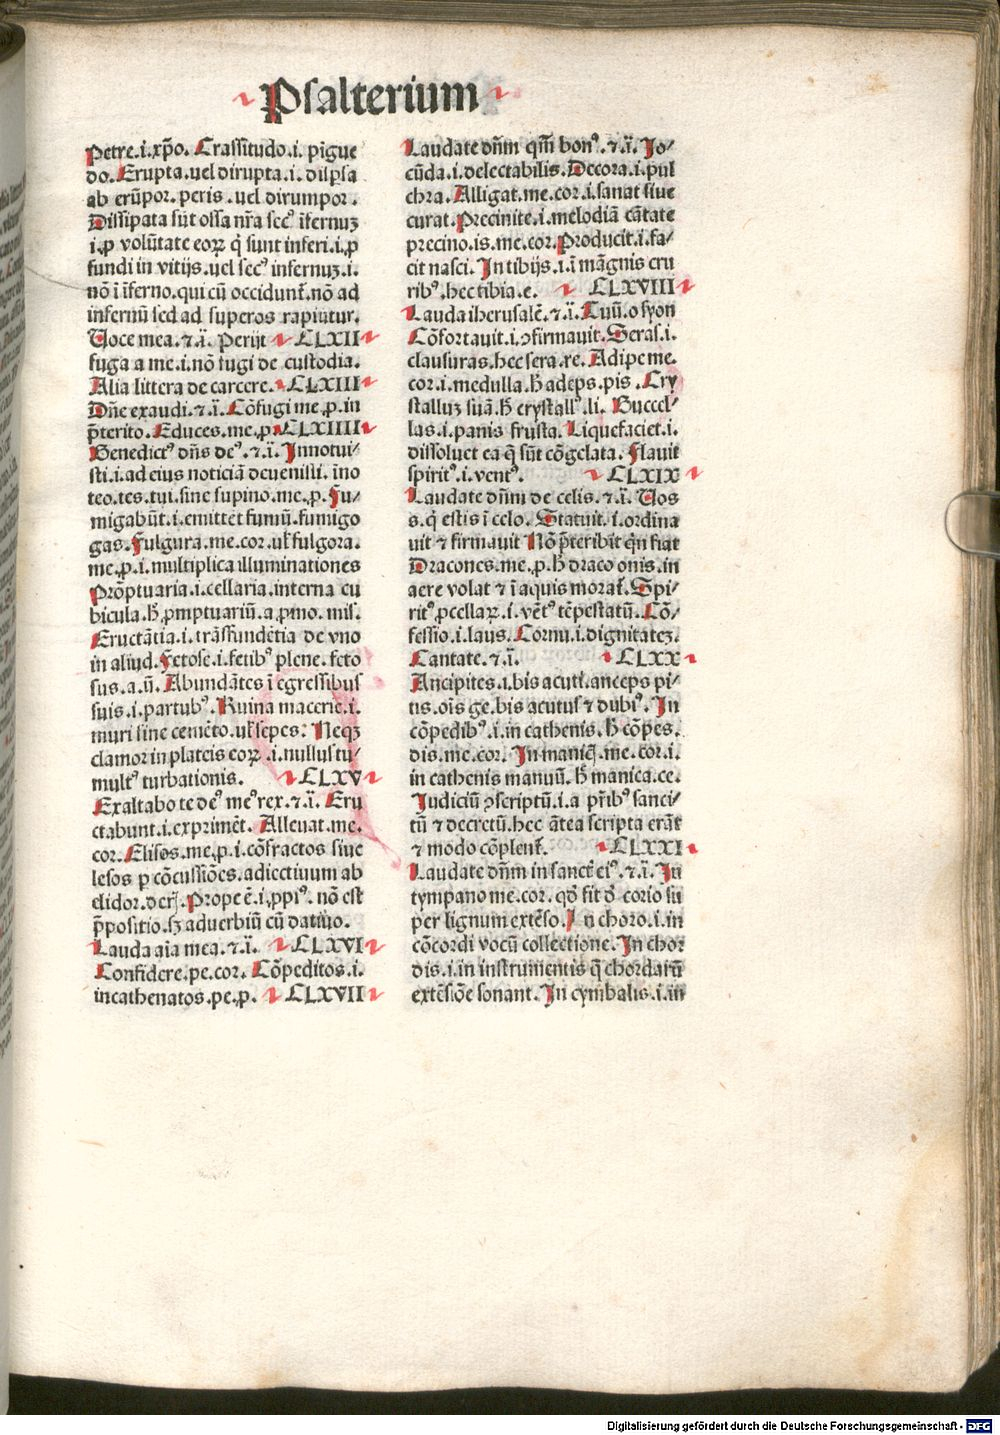 Psalterium
Petre.i.xp̄o. Crassitudo.i. pigue
do. Erupta.uel dirupta.i. disp̱sa
ab erūpor. peris. uel dirumpor.
Dissipata sūt ossa nr̄a secꝰ īfernuꝫ
i.ꝑ volūtate eoꝝ q̄ sunt inferi.i.ꝓ
fundi in vitijs.uel secꝰ infernuꝫ.i.
nō ī īferno.qui cū occidunt̄.nō ad
infernū sed ad superos rapiūtur.
Uoce mea.⁊.ī. Perijt CLXII
fuga a me.i.nō fugi de custodia.
Alia littera de carcere. CLXIII
Dn̄e exaudi.⁊.ī. Cōfugi me.p.in
p̄terito. Educes.me.p. CLXIIII
Benedictꝰ dn̄s deꝰ.⁊.ī. Innotui-
sti.i.ad eius noticiā deuenisti. īno
teo.tes.tui.sine supino.me.p. Fu-
migabūt.i.emittēt fumū.fumigo
gas. Fulgura.me.cor.ul' fulgora.
me.p.i.multiplica illuminationes
Prōptuaria.i.cellaria.interna cu
bicula.h̄ ꝓmptuariū.a ꝓmo. mis.
Eructātia.i.trāsfundētia de vno
in aliud. Fetose.i.fetibꝰ plene.feto
sus.a.ū. Abundātes ī egressibus
suis.i.partubꝰ. Ruina macerie.i.
muri sine cemēto.ul' sepes: Neqꝫ
clamor in plateis eoꝝ.i.nullus tu-
multꝰ turbationis. CLXV
Exaltabo te deꝰ meꝰ rex.⁊.ī. Eru
ctabunt.i.exprimēt. Alleuat.me.
cor. Elisos.me.p.i.cōfractos siue
lesos ꝑ cōcussiōes.adiectiuum ab
elidor.deris. Prope ē.i.ꝓpiꝰ. nō est
p̄positio.sꝫ aduerbiū cū datiuo.
Lauda aīa mea.⁊.ī. CLXVI
Confidere.pe.cor. Cōpeditos.i.
incathenatos.pe.p. CLXVII
Laudate dn̄m qm̄ bonꝰ.⁊.ī. Jo-
cūda.i.delectabilis. Decora.i.pul
chra. Alligat.me.cor.i.sanat siue
curat. Precinite.i.melodiā cātate
precino.is.me.cor. Producit.i.fa-
cit nasci. In tibijs.i.ī māgnis cru
ribꝰ.hec tibia.e. CLXVIII
Lauda iherusalē.⁊.ī. Tuū.o syon
Cōfortauit.i.ꝯfirmauit. Seras.i.
clausuras.hec sera.re. Adipe me.
cor.i.medulla.h̄ adeps.pis. Cry
stalluꝫ suā.h̄ crystallꝰ.li. Buccel-
las.i.panis frusta. Liquefaciet.i.
dissoluet ea q̄ sūt cōgelata. Flauit
spiritꝰ.i.ventꝰ. CLXIX
Laudate dn̄m de celis.⁊.ī. Uos
s.q̄ estis ī celo. Statuit.i.ordina
uit ⁊ firmauit Nō p̄teribit qn̄ fiat
Dracones.me.p.h̄ draco onis.in
aere volat ⁊ ī aquis morat̄. Spi-
ritꝰ ꝓcellaꝝ.i.vētꝰ tēpestatū. Cō-
fessio.i.laus. Cornu.i.dignitateꝫ.
Cantate.⁊.ī. CLXX
Ancipites.i.bis acuti.anceps pi-
tis.oīs ge.bis acutus ⁊ dubiꝰ. In
cōpedibꝰ.i.in cathenis.h̄ cōpes.
dis.me.cor. In maniq̄.me.cor.i.
in cathenis manuū.h̄ manica.ce.
Judiciū ꝯscriptū.i.a pr̄ibꝰ sanci-
tū ⁊ decretū.hec ātea scripta erāt
⁊ modo cōplent̄. CLXXI
Laudate dn̄m in sanct̄ eiꝰ.⁊.ī. In
tympano me.cor. qd̄ fit d̄ corio su
per lignum extēso. In choro.i.in
cōcordi vocū collectione. In chor
dis.i.in instrumentis q̄ chordarū
extēsiōe sonant. In cymbalis.i.in
Digitalisierung gefördert durch die Deutsche Forschungsgemeinschaft - DFG